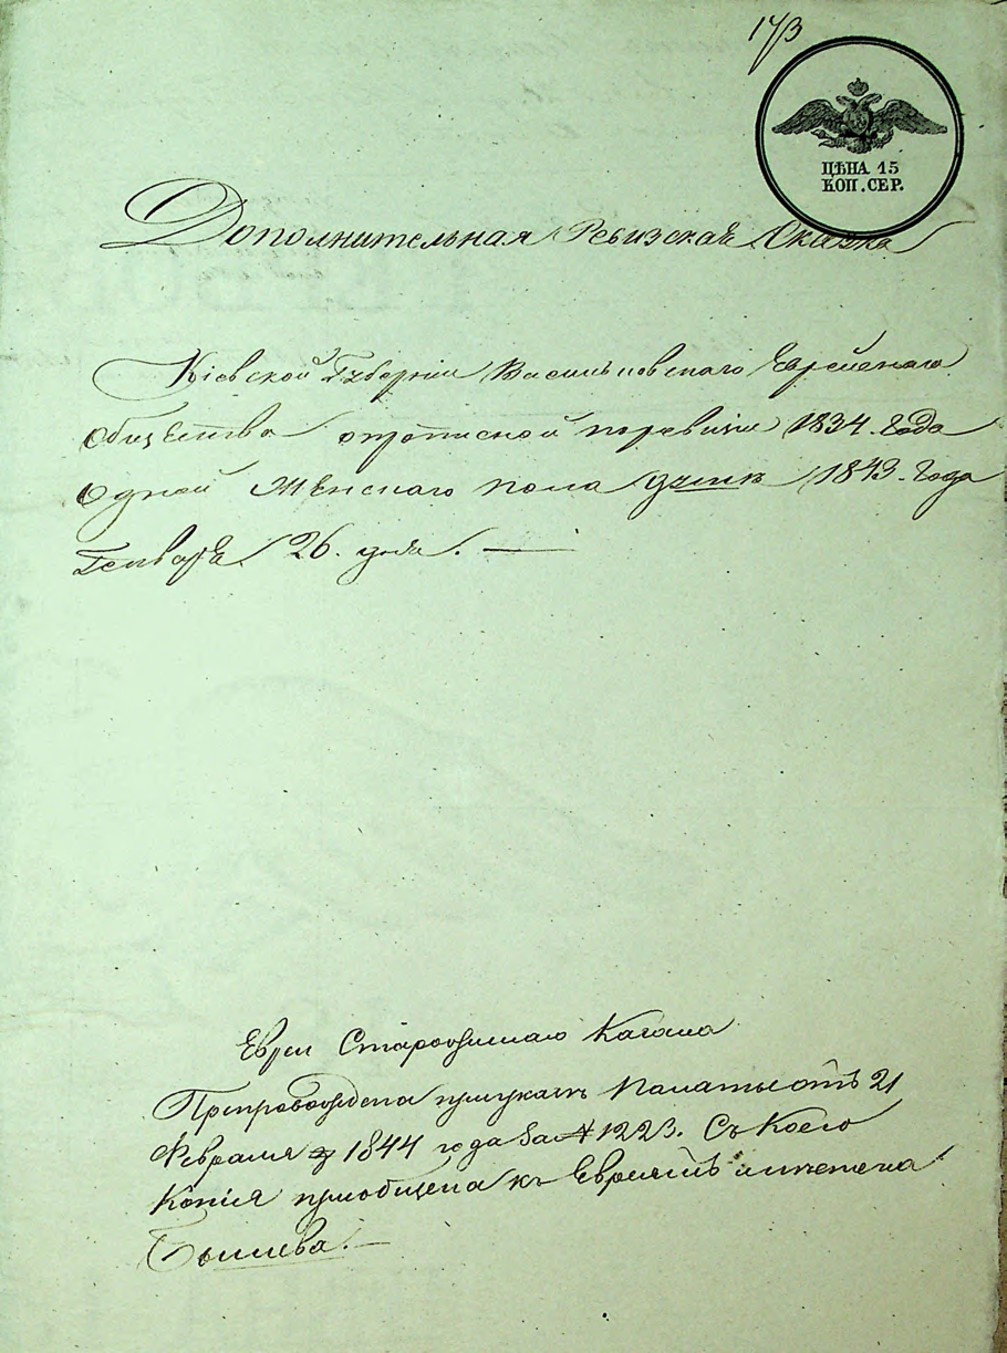 173
ЦѢНА 15
КОП. СЕР.
Дополнительная Ревизская Сказка
Кіевской Губерніи Васильковскаго Еврейскаго
Общества о прописной по ревизіи 1834. Года
Одной Женскаго пола душѣ 1843. Года
Генваря 26. дня. —
Евреи Кагала
Препровождена при указѣ Палаты отъ 21
Февраля 1844 года за № 1223. Съ коего
Копія пріобщена къ Евреямъ мѣстечка
Бышева. —